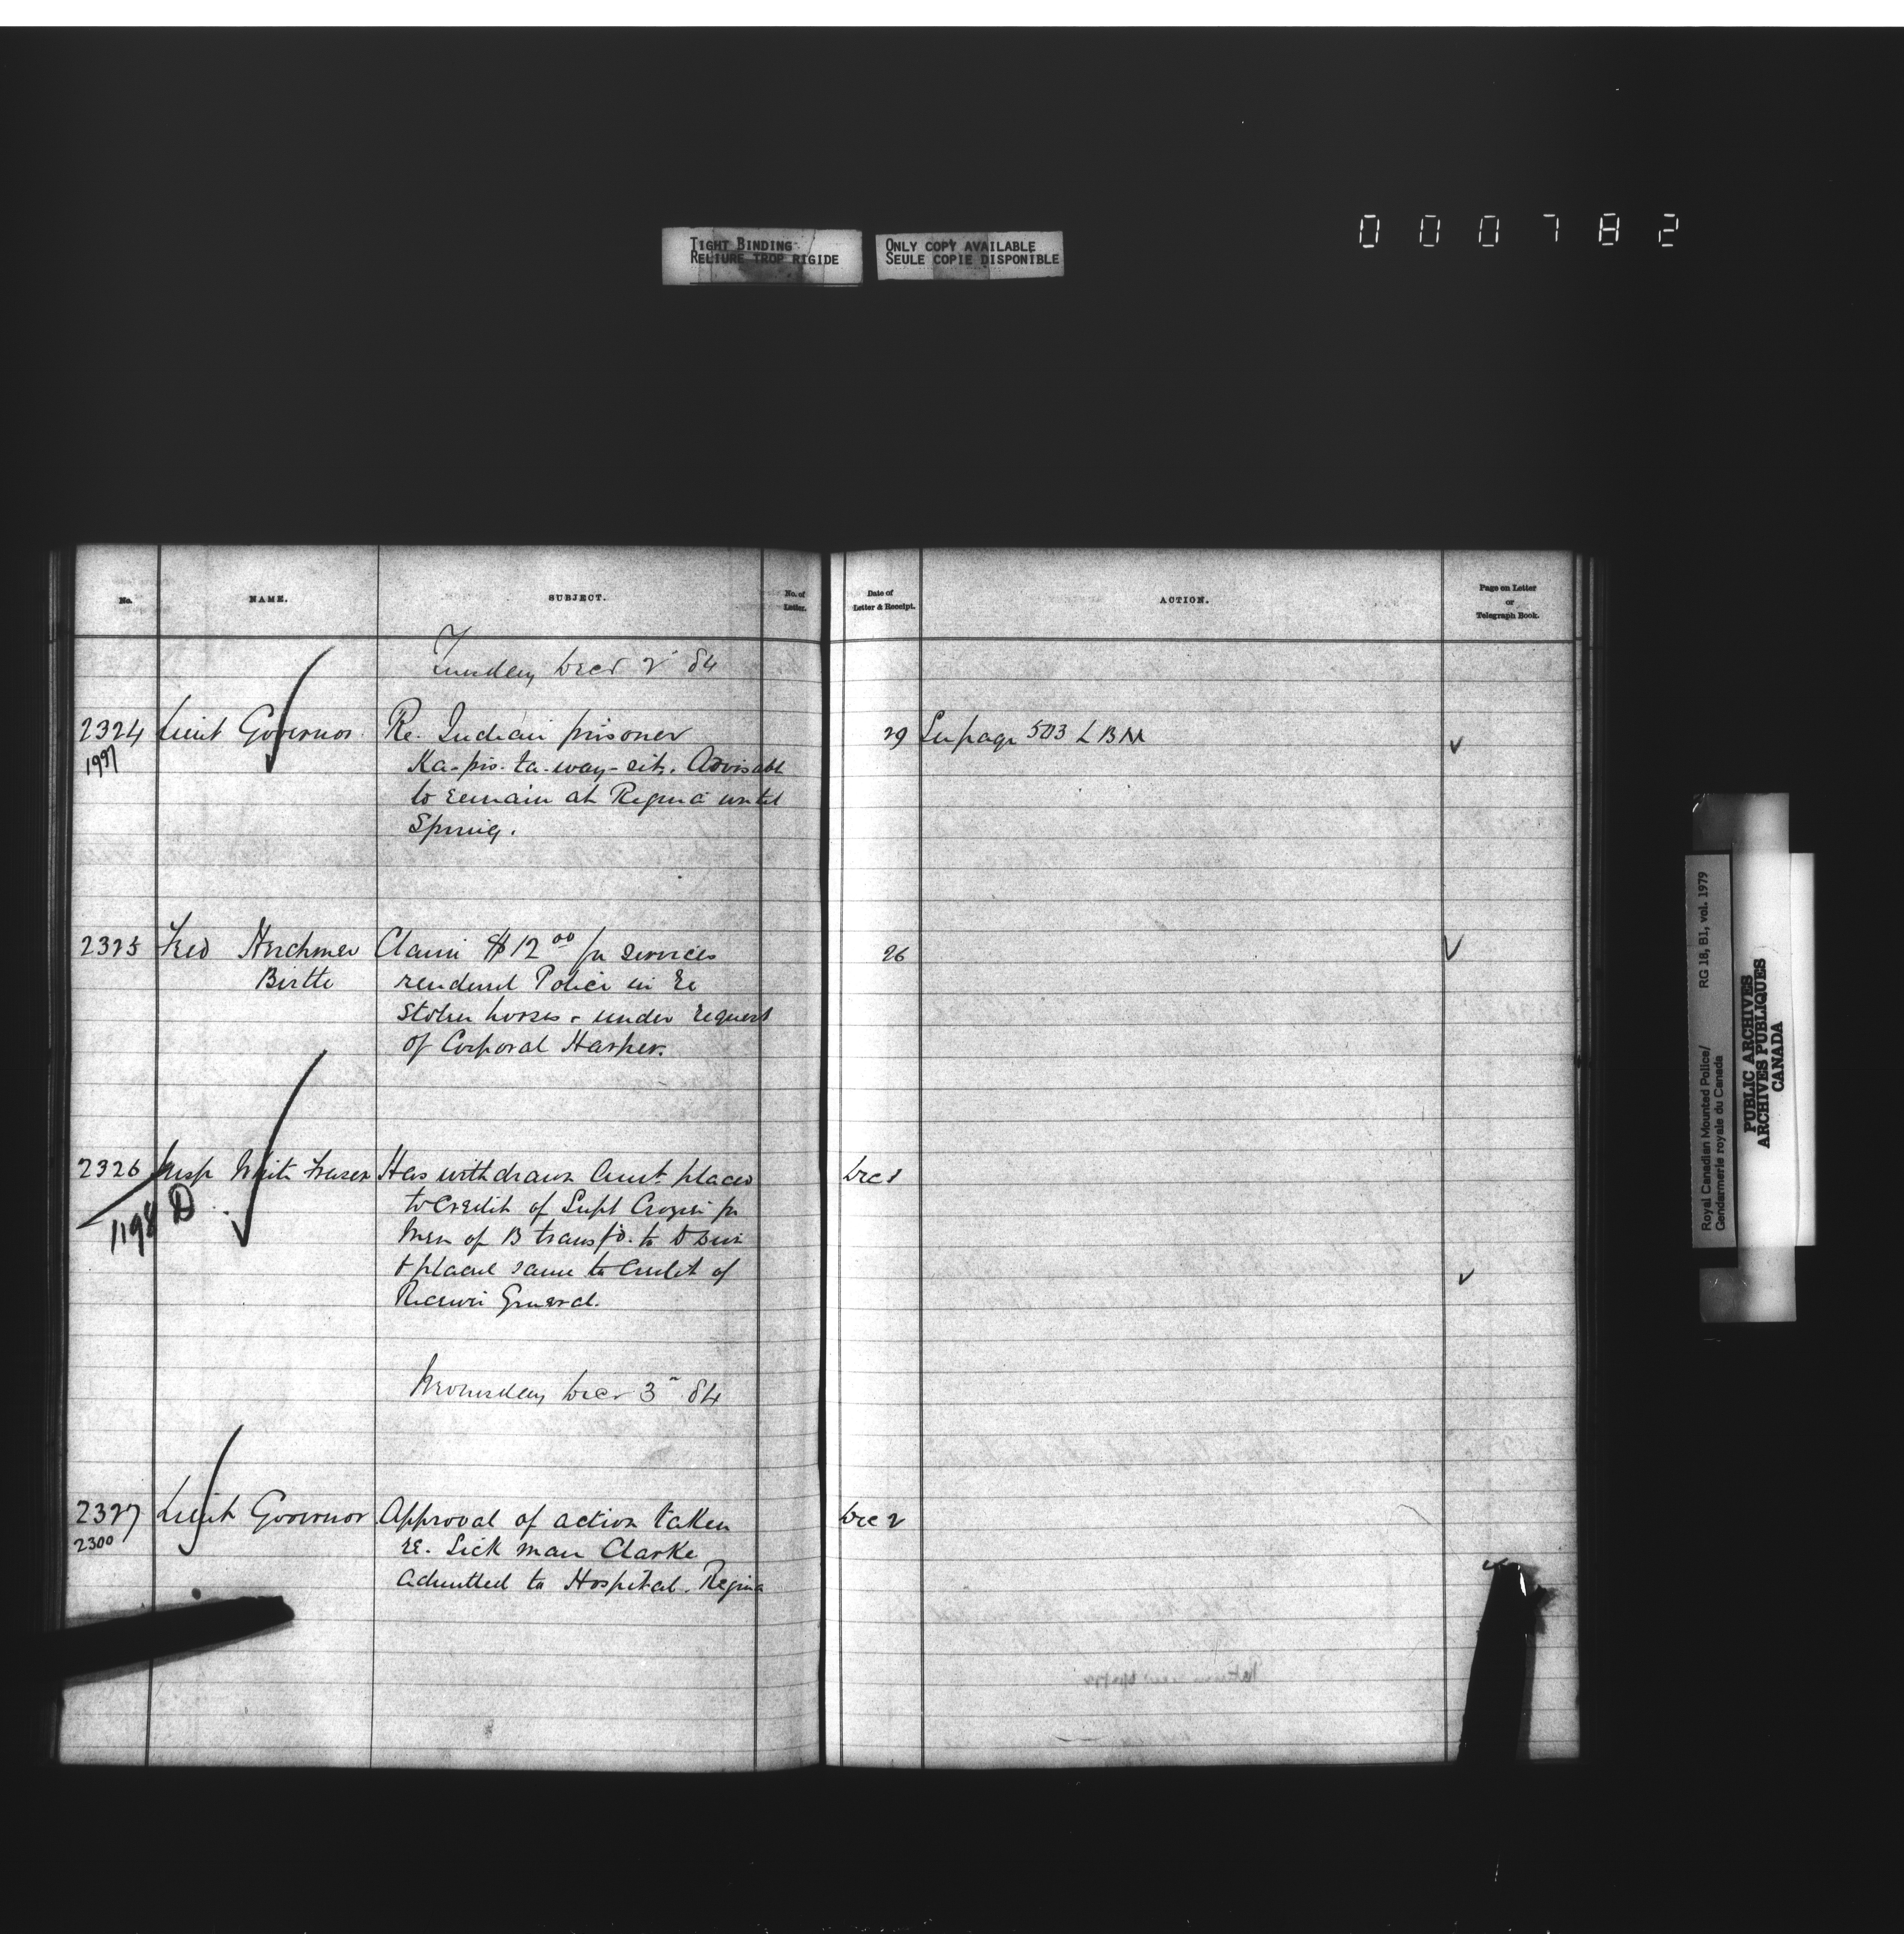 TIGHT BINDING
RELIURE TROP RIGIDE
ONLY COPY AVAILABLE
SEULE COPIE DISPONIBLE
000782
No.
NAME.
SUBJECT.
No. of
Letter.
Date of
Letter & Receipt.
ACTION.
Page on Letter
or
Telegraph Book.
Tuesday Decr 2 84
2324 Lieut Governor Re. Indian prisoner 29 See page 503 L B
1997 Ka-pis-ta-way-sit. Advisable
to remain at Regina until
Spring.
2325 Fred Herchmer Claim $12 00 for services 26
Birtle rendered Police in re
stolen horses - under request
of Corporal Harper.
2326 Insp White Fraser Has withdrawn Amt placed Dec 1
1198 D to credit of Supt Crozier for
men of B transfd. to D Divn
& placed same to credit of
Receiver General.
Wednesday Decr 3 84
2327 Lieut Governor Approval of action taken Dec 2
2300 re. Sick man Clarke
admitted to Hospital. Regina
Royal Canadian Mounted Police/ RG 18, B1, vol. 1979
Gendarmerie royale du Canada
PUBLIC ARCHIVES
ARCHIVES PUBLIQUES
CANADA